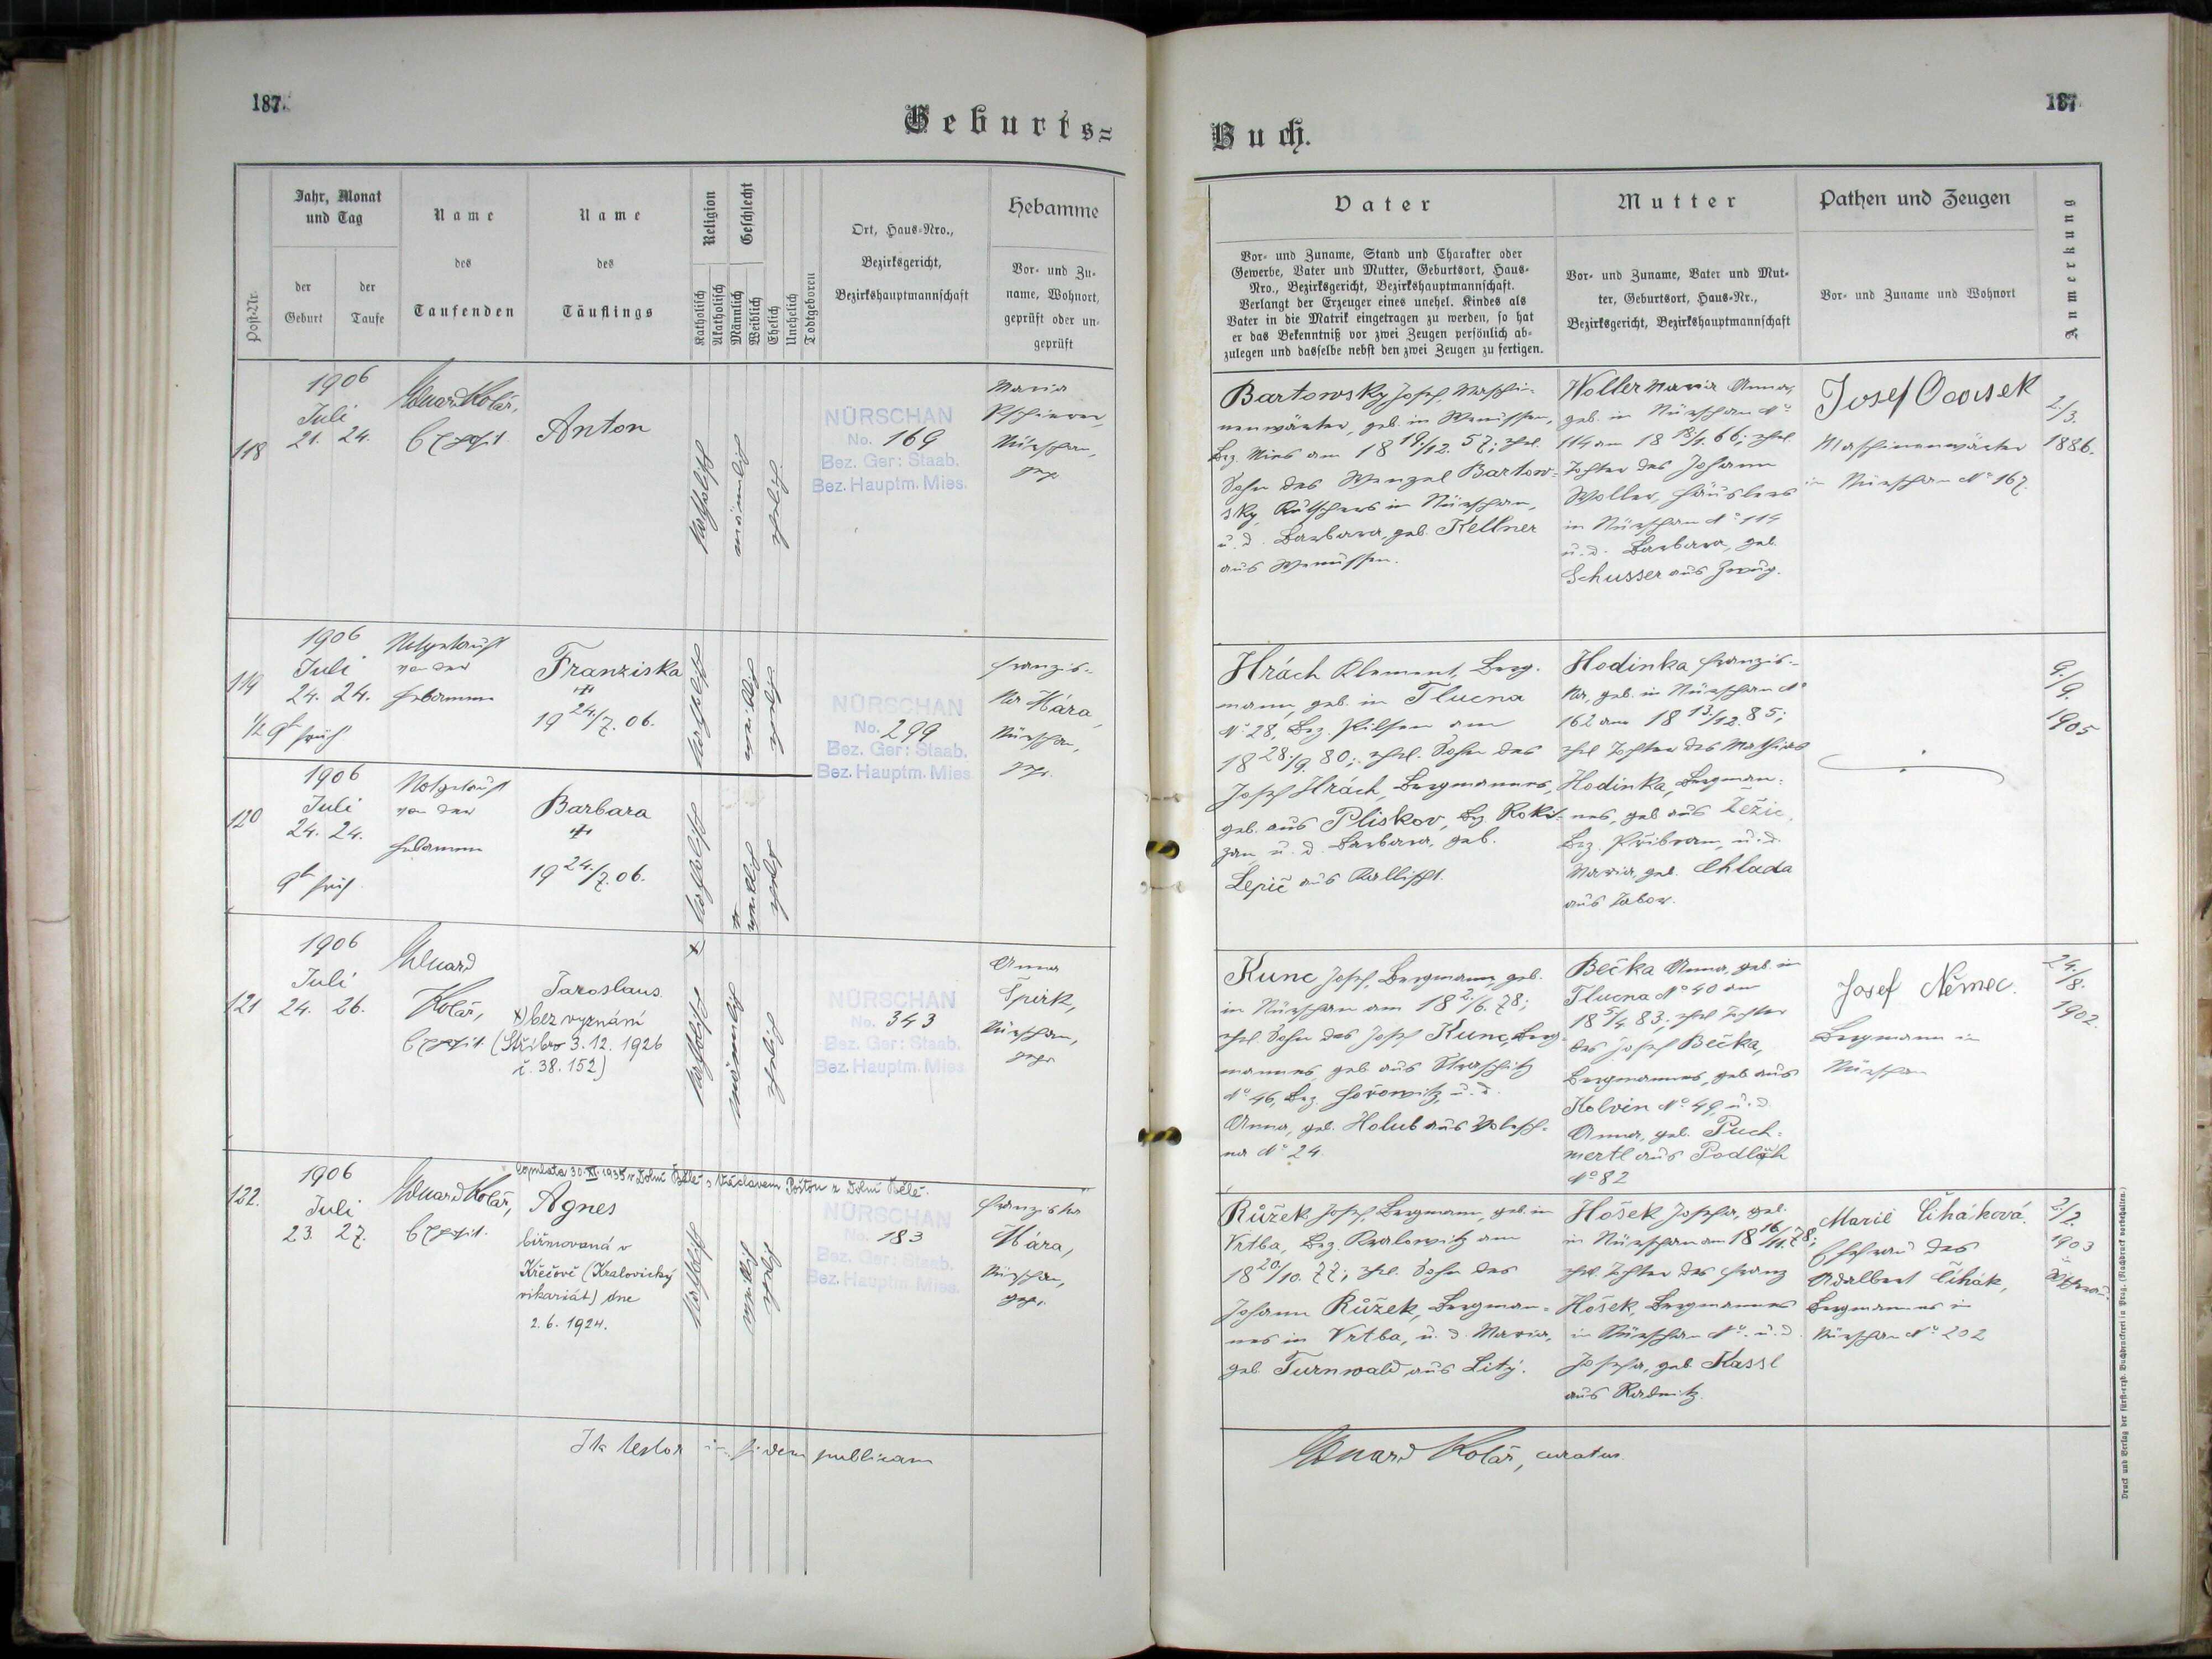 187.
Geburts=
Post-Nr.
Jahr, Monat
und Tag
der
Geburt
der
Taufe
Name
des
Taufenden
Name
des
Täuflings
Religion
Katholisch
Akatholisch
Geschlecht
Männlich
Weiblich
Ehelich
Unehelich
Todtgeboren
Ort, Haus-Nro.,
Bezirksgericht,
Bezirkshauptmannschaft
Hebamme
Vor- und Zu-
name, Wohnort,
geprüft oder un-
geprüft
118
1906
Juli
21. 24.
Eduard Kolář,
Exposit.
Anton
katholisch
männlich
ehelich
NÜRSCHAN
No. 169
Bez. Ger: Staab.
Bez. Hauptm. Mies.
Maria
Nürschan,
gepr.
119
1906
Juli
24. 24.
1/2 9h früh
Notgetauft
von der
Hebamme
Franziska
19 24./7. 06.
katholisch
weiblich
ehelich
NÜRSCHAN
No. 299
Bez. Ger: Staab.
Bez. Hauptm. Mies
Franzis-
ka Mára,
Nürschan,
gepr.
120
1906
Juli
24. 24.
9h früh
Notgetauft
von der
Hebamme
Barbara
19 24./7. 06.
katholisch
weiblich
ehelich
121
1906
Juli
24. 26.
Eduard
Kolář,
Exposit.
Jaroslaus
x) bez vyznání
(Stříbro 3.12. 1926
č. 38.152)
katholisch
männlich
ehelich
NÜRSCHAN
No. 343
Bez. Ger: Staab.
Bez. Hauptm. Mies
Anna
Špirk,
Nürschan,
gepr.
122.
1906
Juli
23. 27.
Eduard Kolář,
Exposit.
Copulata 30. XI. 1935 v Dolní Bělé s Václavem Poštou z Dolní Bělé.
Agnes
biřmovaná v
Křečově (Kralovický
vikariát) dne
2.6.1924.
katholisch
weiblich
ehelich
NÜRSCHAN
No. 183
Bez. Ger: Staab.
Bez. Hauptm. Mies.
Franziska
Mára,
Nürschan,
gepr.
Ita testor in fidem publicam
187
Buch.
Vater
Vor- und Zuname, Stand und Charakter oder
Gewerbe, Vater und Mutter, Geburtsort, Haus-
Nro., Bezirksgericht, Bezirkshauptmannschaft.
Verlangt der Erzeuger eines unehel. Kindes als
Vater in die Matrik eingetragen zu werden, so hat
er das Bekenntniß vor zwei Zeugen persönlich ab-
zulegen und dasselbe nebst den zwei Zeugen zu fertigen.
Mutter
Vor- und Zuname, Vater und Mut-
ter, Geburtsort, Haus-Nr.,
Bezirksgericht, Bezirkshauptmannschaft
Pathen und Zeugen
Vor- und Zuname und Wohnort
Anmerkung
Bartowsky Josef, Maschi-
nenwärter, geb. in Wenussen,
Bez. Mies am 18 19./12. 57; ehel.
Sohn des Wenzel Bartow-
sky, Kutschers in Nürschan,
u. d. Barbara, geb. Kellner
aus Wenussen.
Woller Maria Anna,
geb. in Nürschan No
114 am 18 18/1. 66; ehel.
Tochter des Johann
Woller, Häuslers
in Nürschan No 114
u. d. Barbara, geb.
Schusser aus Zwug.
Josef
Maschinenwärter
in Nürschan No 167.
2./3.
1886.
Hrách Klement, Berg-
mann, geb. in Tlucna
No 28, Bez. Pilsen am
18 28./9. 80; ehel. Sohn des
Josef Hrách, Bergmannes,
geb. aus Pliskov, Bez. Roki-
zan, u. d. Barbara, geb.
Lepič aus Kallischt.
Hodinka Franzis-
ka, geb. in Nürschan No
162 am 18 13./12. 85;
ehel. Tochter des Mathias
Hodinka, Bergman-
nes, geb. aus Žežic,
Bez. Přibram, u. d.
Maria, geb. Chlada
aus Tabor.
9./9.
1905
Kunc Josef, Bergmann, geb.
in Nürschan am 18 2./6. 78;
ehel. Sohn des Josef Kunc, Berg-
mannes, geb. aus Straschitz
No 46, Bez. Hořowitz, u. d.
Anna, geb. Holub aus Wolesch-
na No 24.
Bečka Anna, geb. in
Tlucna No 40 am
18 5/4. 83; ehel. Tochter
des Josef Bečka,
Bergmannes, geb. aus
Kolvin No 49, u. d.
Anna, geb. Puch-
mertl aus Podluh
No 82
Josef Němec.
Bergmann in
Nürschan
24./8.
1902.
Růžek Josef, Bergmann, geb. in
Vrtba, Bez. Kralowitz am
18 20/10. 77; ehel. Sohn des
Johann Růžek, Bergman-
nes in Vrtba, u. d. Maria,
geb. Turnwald aus Litý.
Hošek Josefa, geb.
in Nürschan am 18 16/11. 78;
ehel. Tochter des Franz
Hošek, Bergmannes
in Nürschan No. u. d.
Josefa, geb. Kassl
aus Radnitz.
Marie Čiháková.
Ehefrau des
Adalbert Čihák,
Bergmannes in
Nürschan No 202
2./2.
1903
Eduard Kolář, curatus.
Druck und Verlag der fürsterzb. Buchdruckerei in Prag. (Nachdruck vorbehalten.)